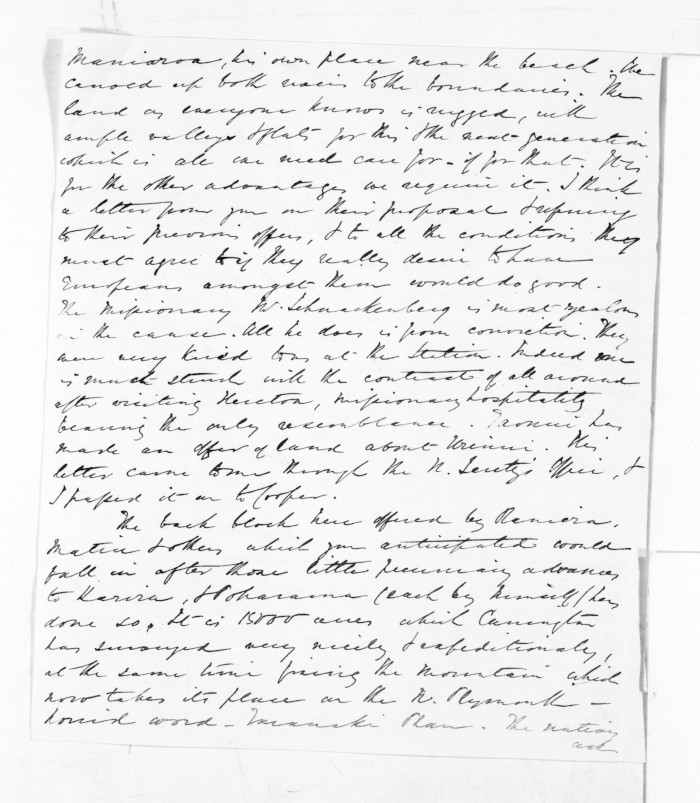 his own place near the beach. We
canoed up both rivers to the boundaries. The
land as everyone knows is rugged, with
ample valleys & flats for this & the next generation
which is all we need care for - if for that. It is
for the other advantages we require it. I think
a letter from you on their proposal & referring
to their previous offers, & to all the conditions they
must agree to if they really desire to have
Europeans amongst them would do good.
The Missionary Mr. Schnackenberg is most zealous
in the cause. All he does is from conviction. They
were very kind to us at the Station. Indeed one
is much struck with the contrast of all around
after visiting missionary hospitality
bearing the only resemblance. has
made an offer of land about His
letter came to me through the N. Secty's Office, &
I passed it on to Cooper.
The back block here offered by
& others which you anticipated would
fall in after those little pecuniary advances
to & (each by himself) has
done so. It is 15000 acres which Carrington
has surveyed very nicely & expeditiously,
at the same time fixing the mountain which
now takes its place on the N. Plymouth -
horrid word - Taranaki Plan. The natives
ask